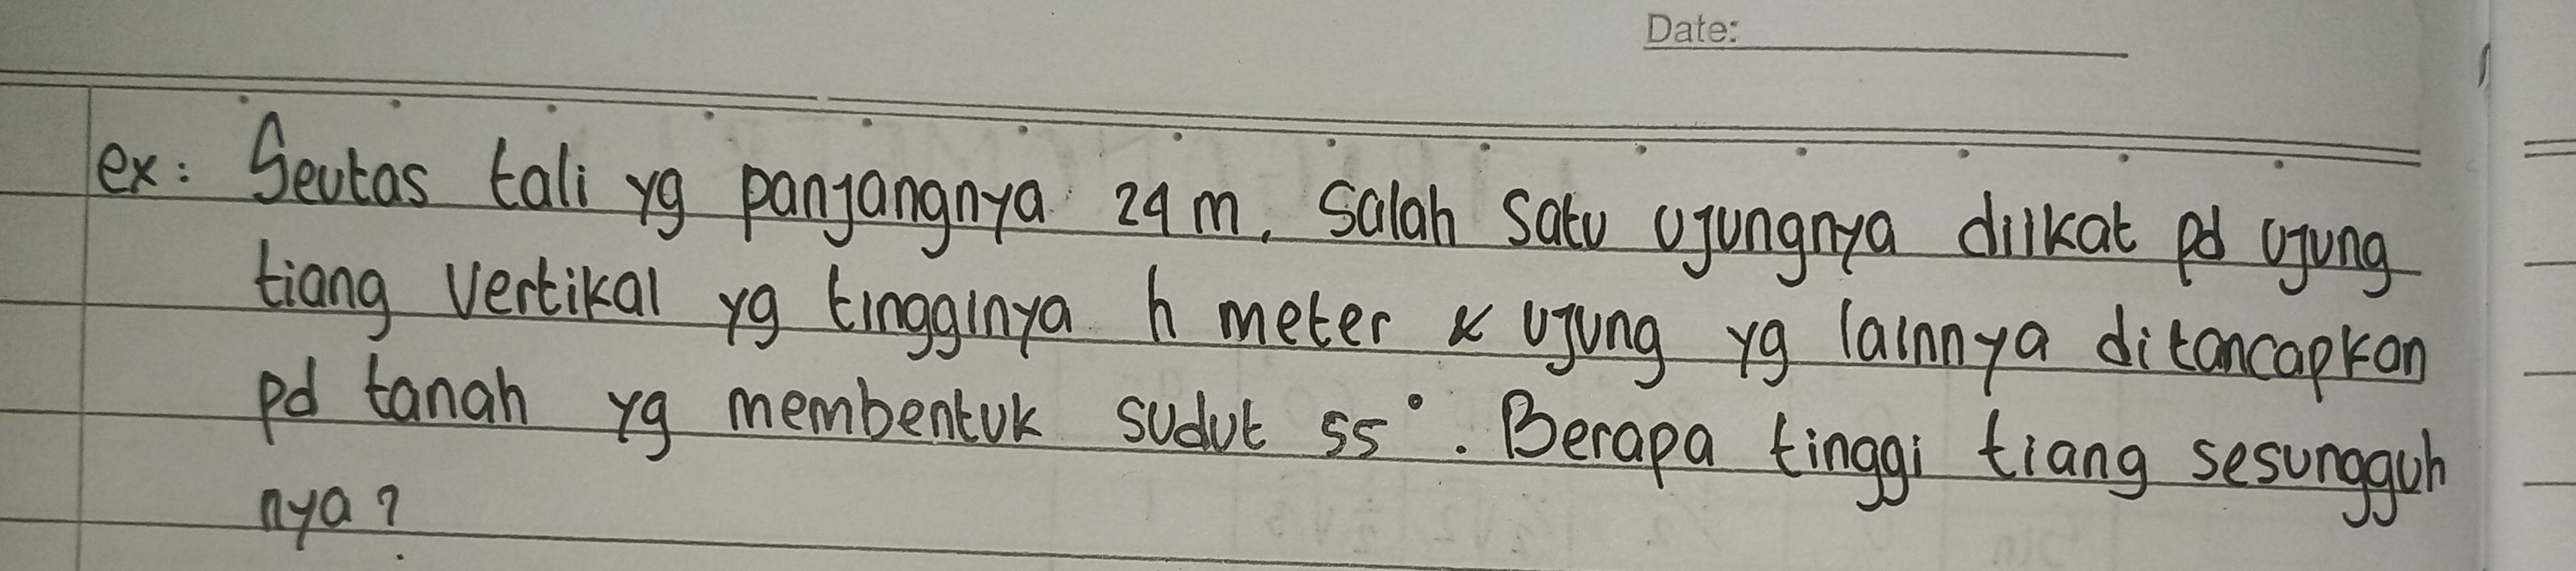 Date:
ex: Seutas tali yg panjangnya 24 m. Salah satu ujungnya diikat pd ujung
tiang vertikal yg tingginya h meter & ujung yg lainnya ditancapkan
pd tanah yg membentuk sudut 55°. Berapa tinggi tiang sesungguh
nya?